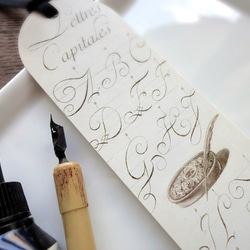 Lettres
Capitales
A B C
D E F
G H I